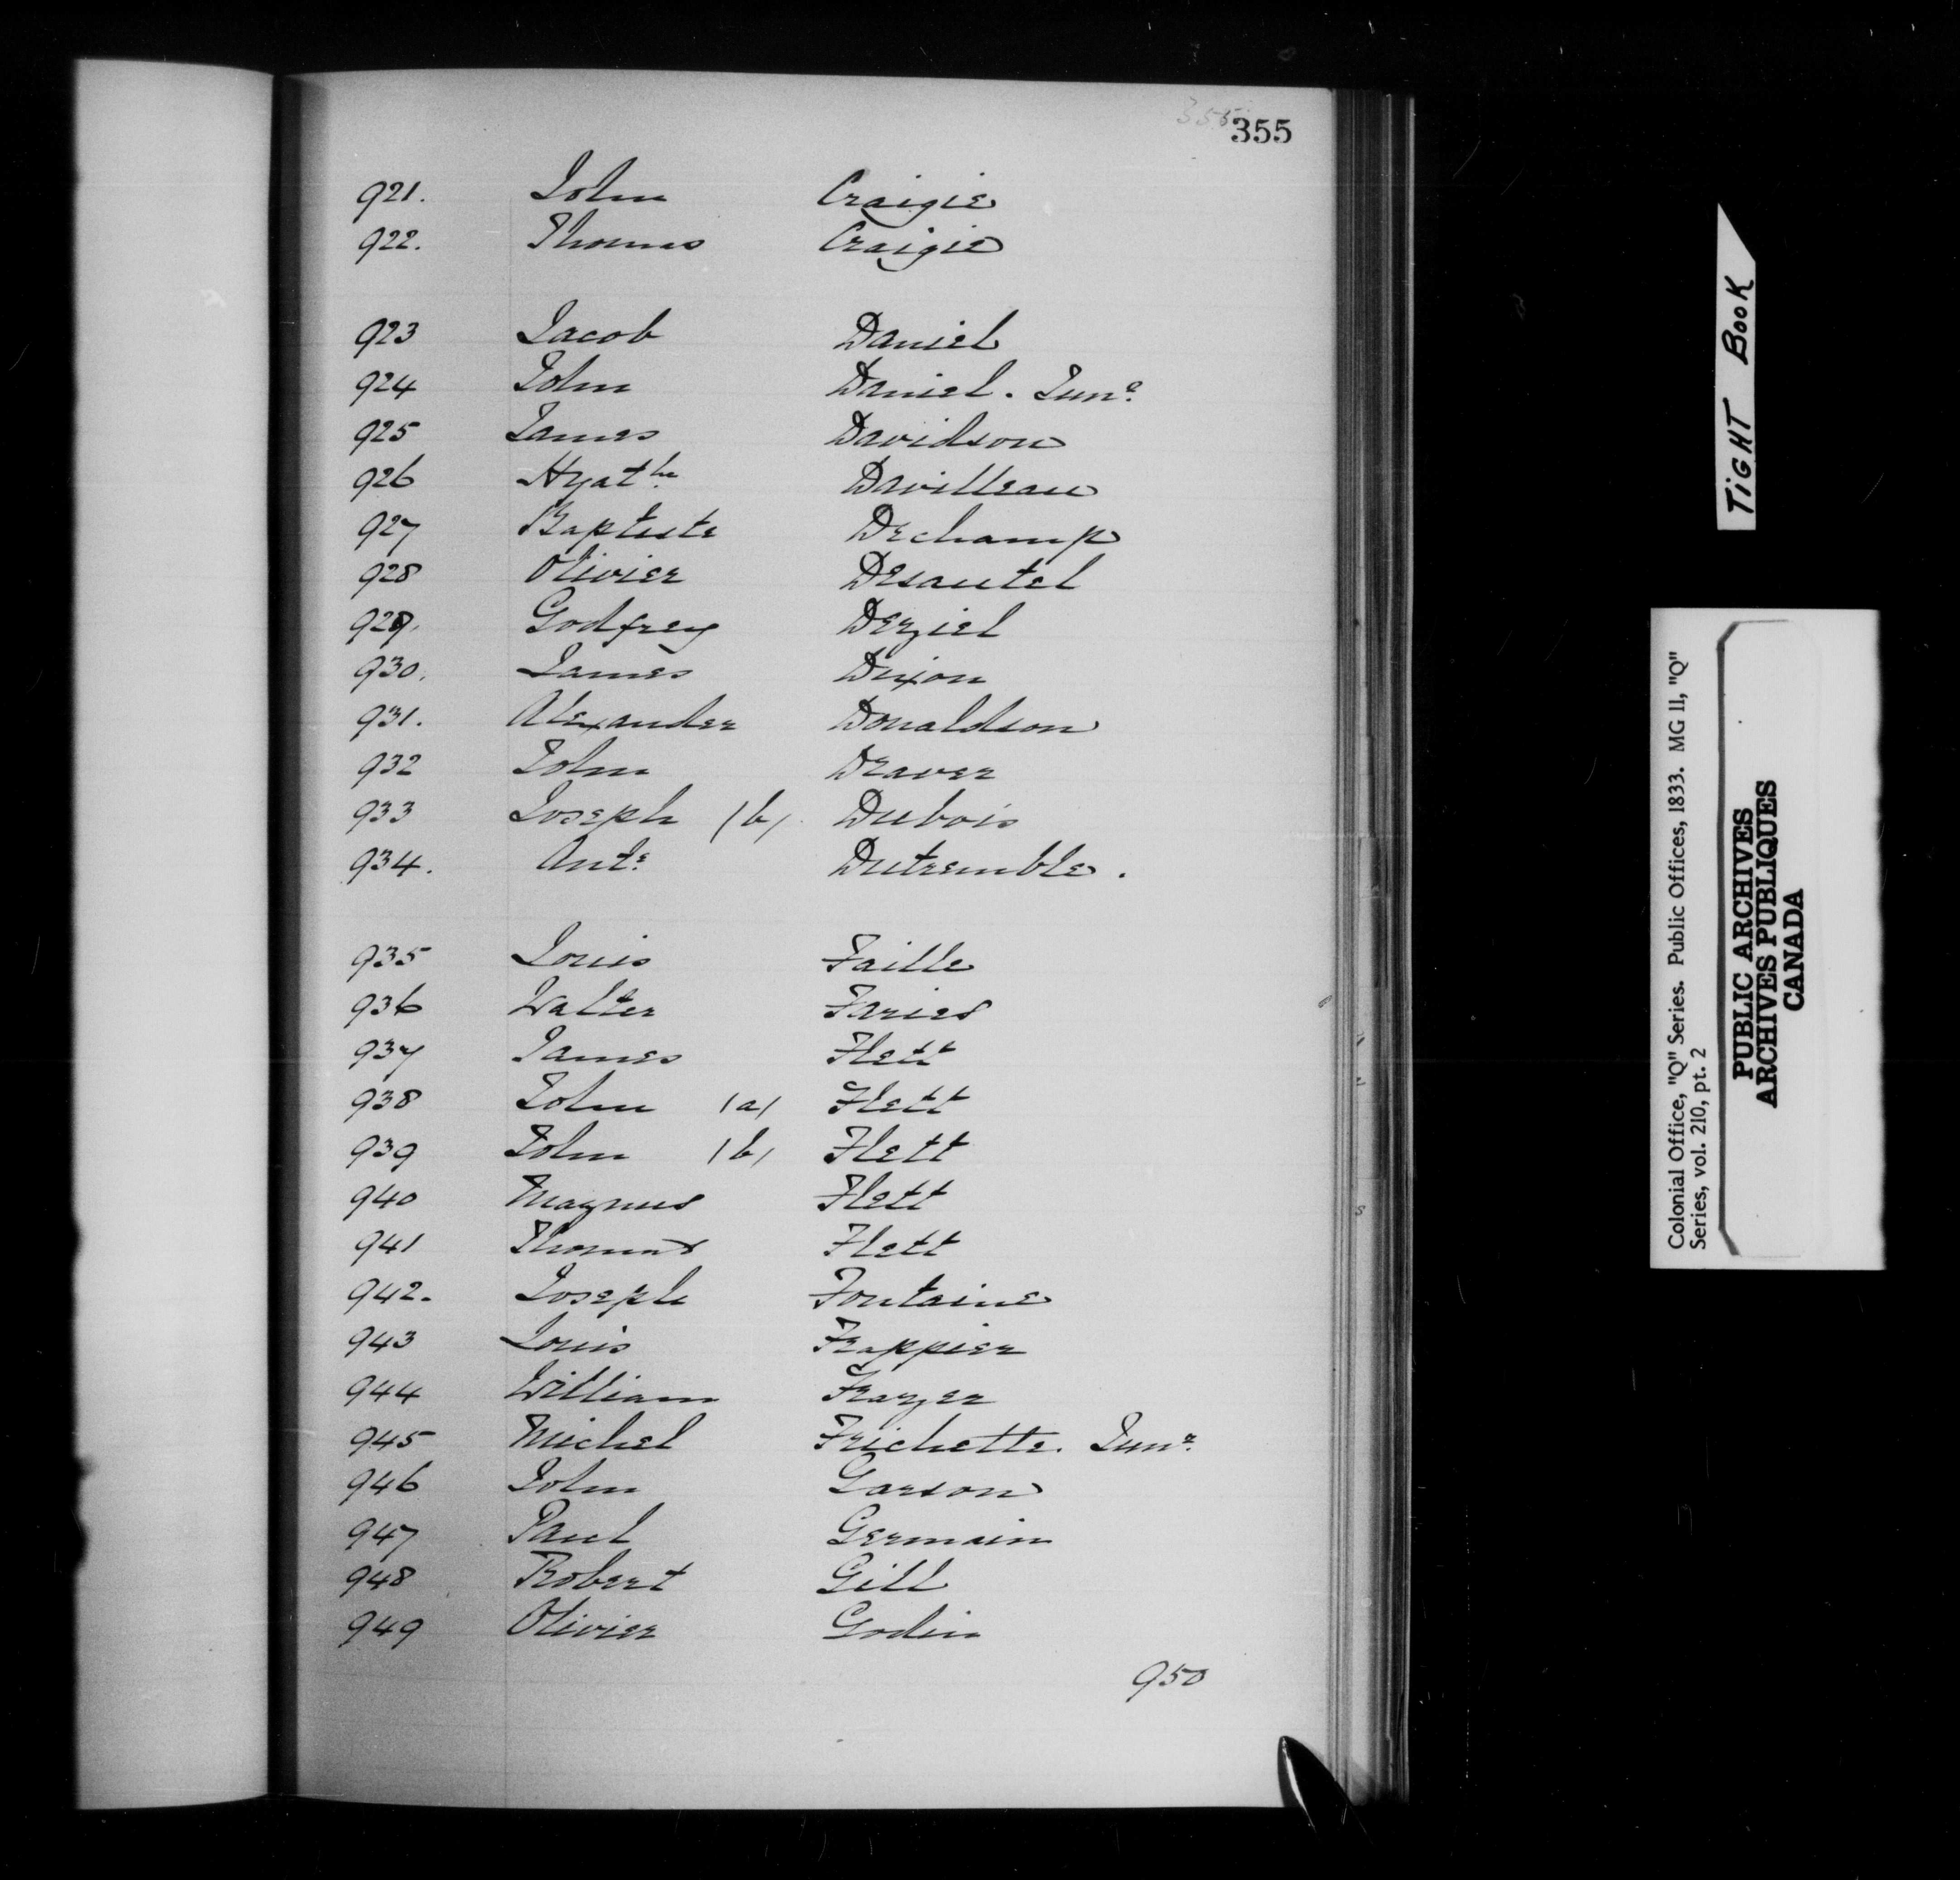 355
355
921. John Craigie
922. Thomas Craigie
923 Jacob Daniel
924 John Daniel. Junr.
925 James Davidson
926 Hyathe Davilleau
927 Baptiste Dechamp
928 Olivier Desautel
929. Godfrey Deziel
930. James Dixon
931. Alexander Donaldson
932 John Draver
933 Joseph (b) Dubois
934. Ante. Dutremble.
935 Louis Faille
936 Walter Faries
937 James Flett
938 John (a) Flett
939 John (b) Flett
940 Magnus Flett
941 Thomas Flett
942. Joseph Fontaine
943 Louis Frappier
944 William Frazer
945 Michel Frichette. Junr.
946 John Garson
947 Paul Germain
948 Robert Gill
949 Olivier Godin
950
TIGHT BOOK
Colonial Office, "Q" Series. Public Offices, 1833. MG 11, "Q"
Series, vol. 210, pt. 2
PUBLIC ARCHIVES
ARCHIVES PUBLIQUES
CANADA